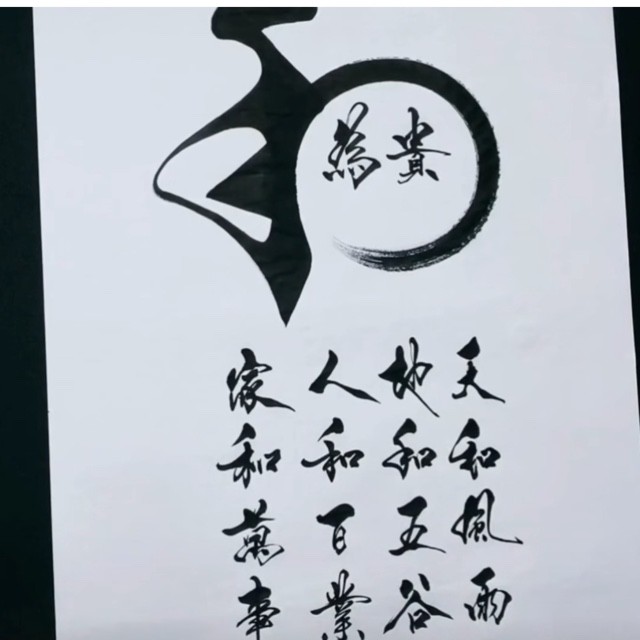 和為貴
天和風雨
地和五谷
人和百業
家和萬事